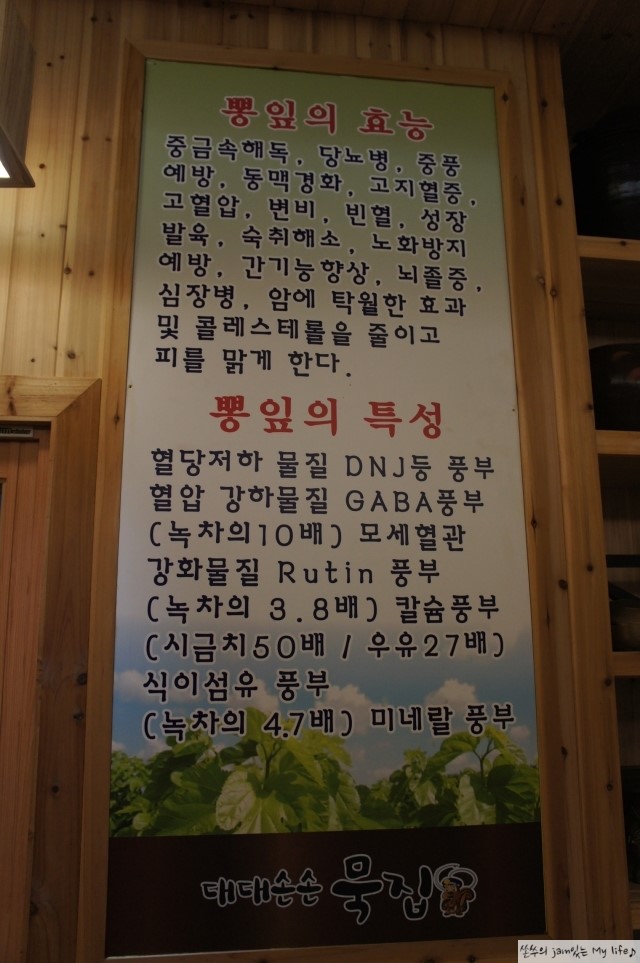 뽕잎의 효능
중금속해독, 당뇨병, 중풍
예방, 동맥경화, 고지혈증,
고혈압, 변비, 빈혈, 성장
발육, 숙취해소, 노화방지
예방, 간기능향상, 뇌졸증,
심장병, 암에 탁월한 효과
및 콜레스테롤을 줄이고
피를 맑게 한다.
뽕잎의 특성
혈당저하 물질 DNJ등 풍부
혈압 강하물질 GABA풍부
(녹차의10배) 모세혈관
강화물질 Rutin 풍부
(녹차의 3.8배) 칼슘풍부
(시금치50배 / 우유27배)
식이섬유 풍부
(녹차의 4.7배) 미네랄 풍부
대대손손 묵집
쏘쑤의 jain있는 My life♪